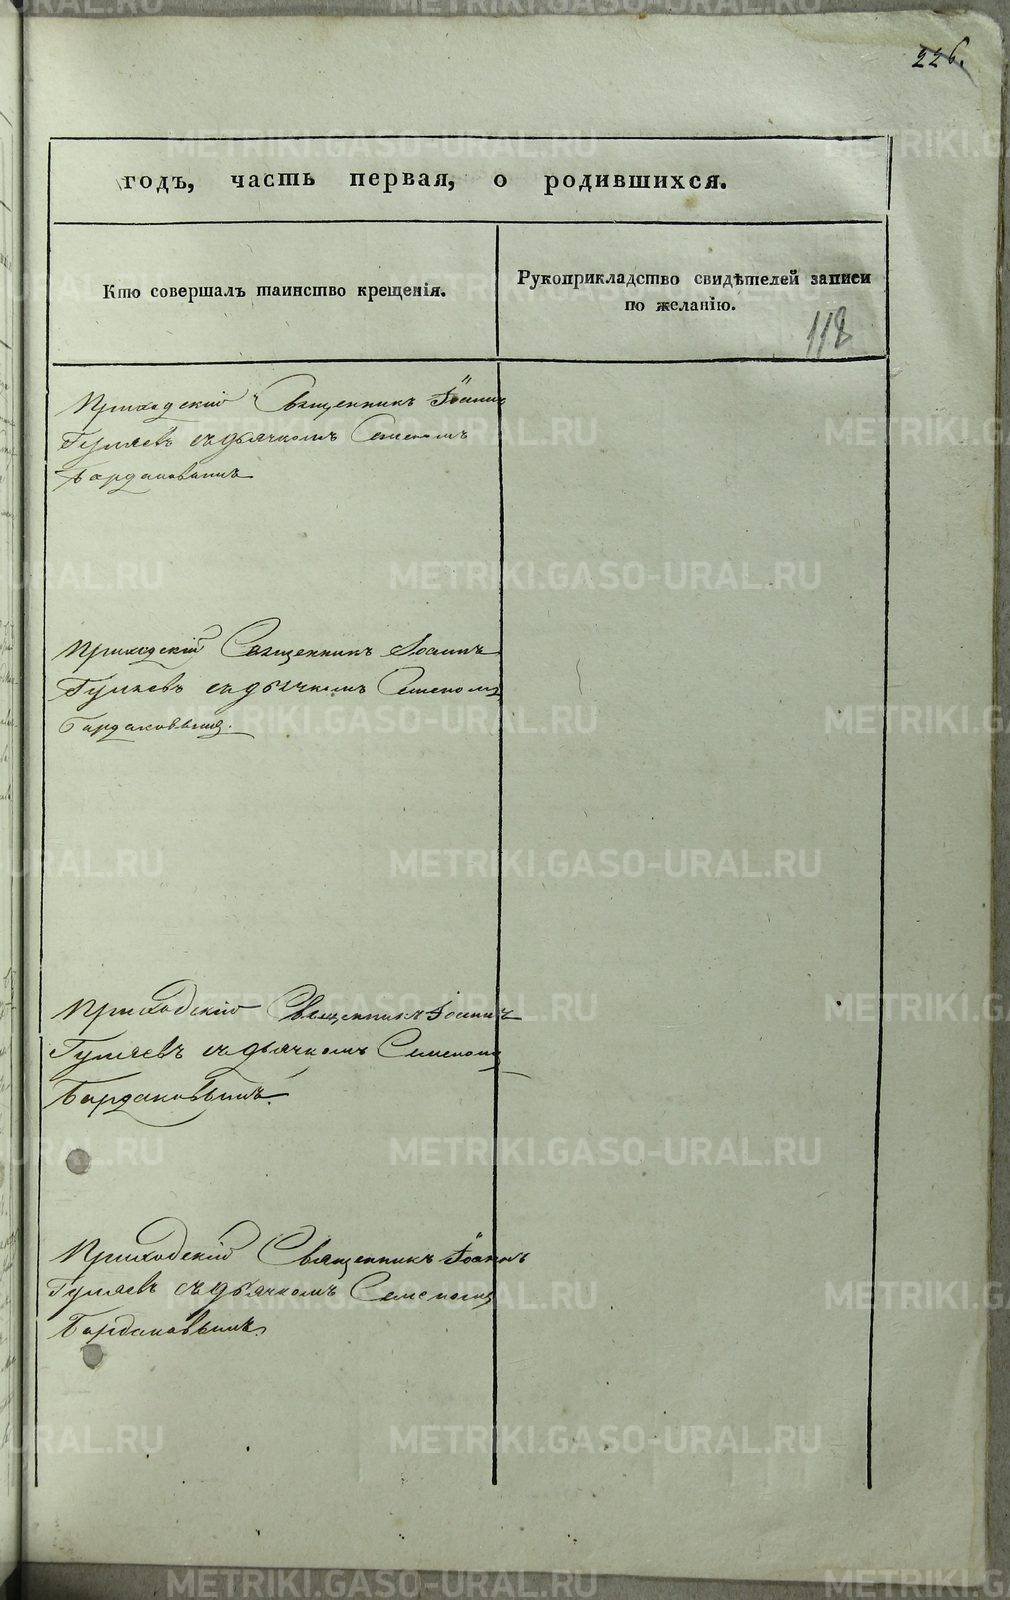 226.
годъ, часть первая, о родившихся.
Кто совершалъ таинство крещенія.
Рукоприкладство свидѣтелей записи
по желанію.
118
Приходскій Священникъ Іоаннъ
Гуляевъ съ дьячкомъ Семеномъ
Бардаковымъ
Приходскій Священникъ Іоаннъ
Гуляевъ съ дьячкомъ Семеномъ
Бардаковымъ.
Приходскій Священникъ Іоаннъ
Гуляевъ съ дьячкомъ Семеномъ
Бардаковымъ.
Приходскій Священникъ Іоаннъ
Гуляевъ съ дьячкомъ Семеномъ
Бардаковымъ
METRIKI.GASO-URAL.RU